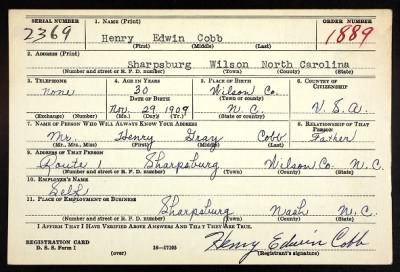 SERIAL NUMBER 1. NAME (Print) ORDER NUMBER
2369 Henry Edwin Cobb 1889
(First) (Middle) (Last)
2. ADDRESS (Print)
Sharpsburg Wilson North Carolina
(Number and street or R. F. D. number) (Town) (County) (State)
3. TELEPHONE 4. AGE IN YEARS 5. PLACE OF BIRTH 6. COUNTRY OF CITIZENSHIP
none 30 Wilson Co.
DATE OF BIRTH (Town or county)
Nov. 29 1909 N. C. U. S. A.
(Exchange) (Number) (Mo.) (Day) (Yr.) (State or country)
7. NAME OF PERSON WHO WILL ALWAYS KNOW YOUR ADDRESS 8. RELATIONSHIP OF THAT PERSON
Mr. Henry Gray Cobb Father
(Mr., Mrs., Miss) (First) (Middle) (Last)
9. ADDRESS OF THAT PERSON
Route 1 Sharpsburg Wilson Co. N. C.
(Number and street or R. F. D. number) (Town) (County) (State)
10. EMPLOYER'S NAME
Self
11. PLACE OF EMPLOYMENT OR BUSINESS
Sharpsburg Nash N. C.
(Number and street or R. F. D. number) (Town) (County) (State)
I AFFIRM THAT I HAVE VERIFIED ABOVE ANSWERS AND THAT THEY ARE TRUE.
REGISTRATION CARD
D. S. S. Form 1 (over) 16-17105 Henry Edwin Cobb
(Registrant's signature)